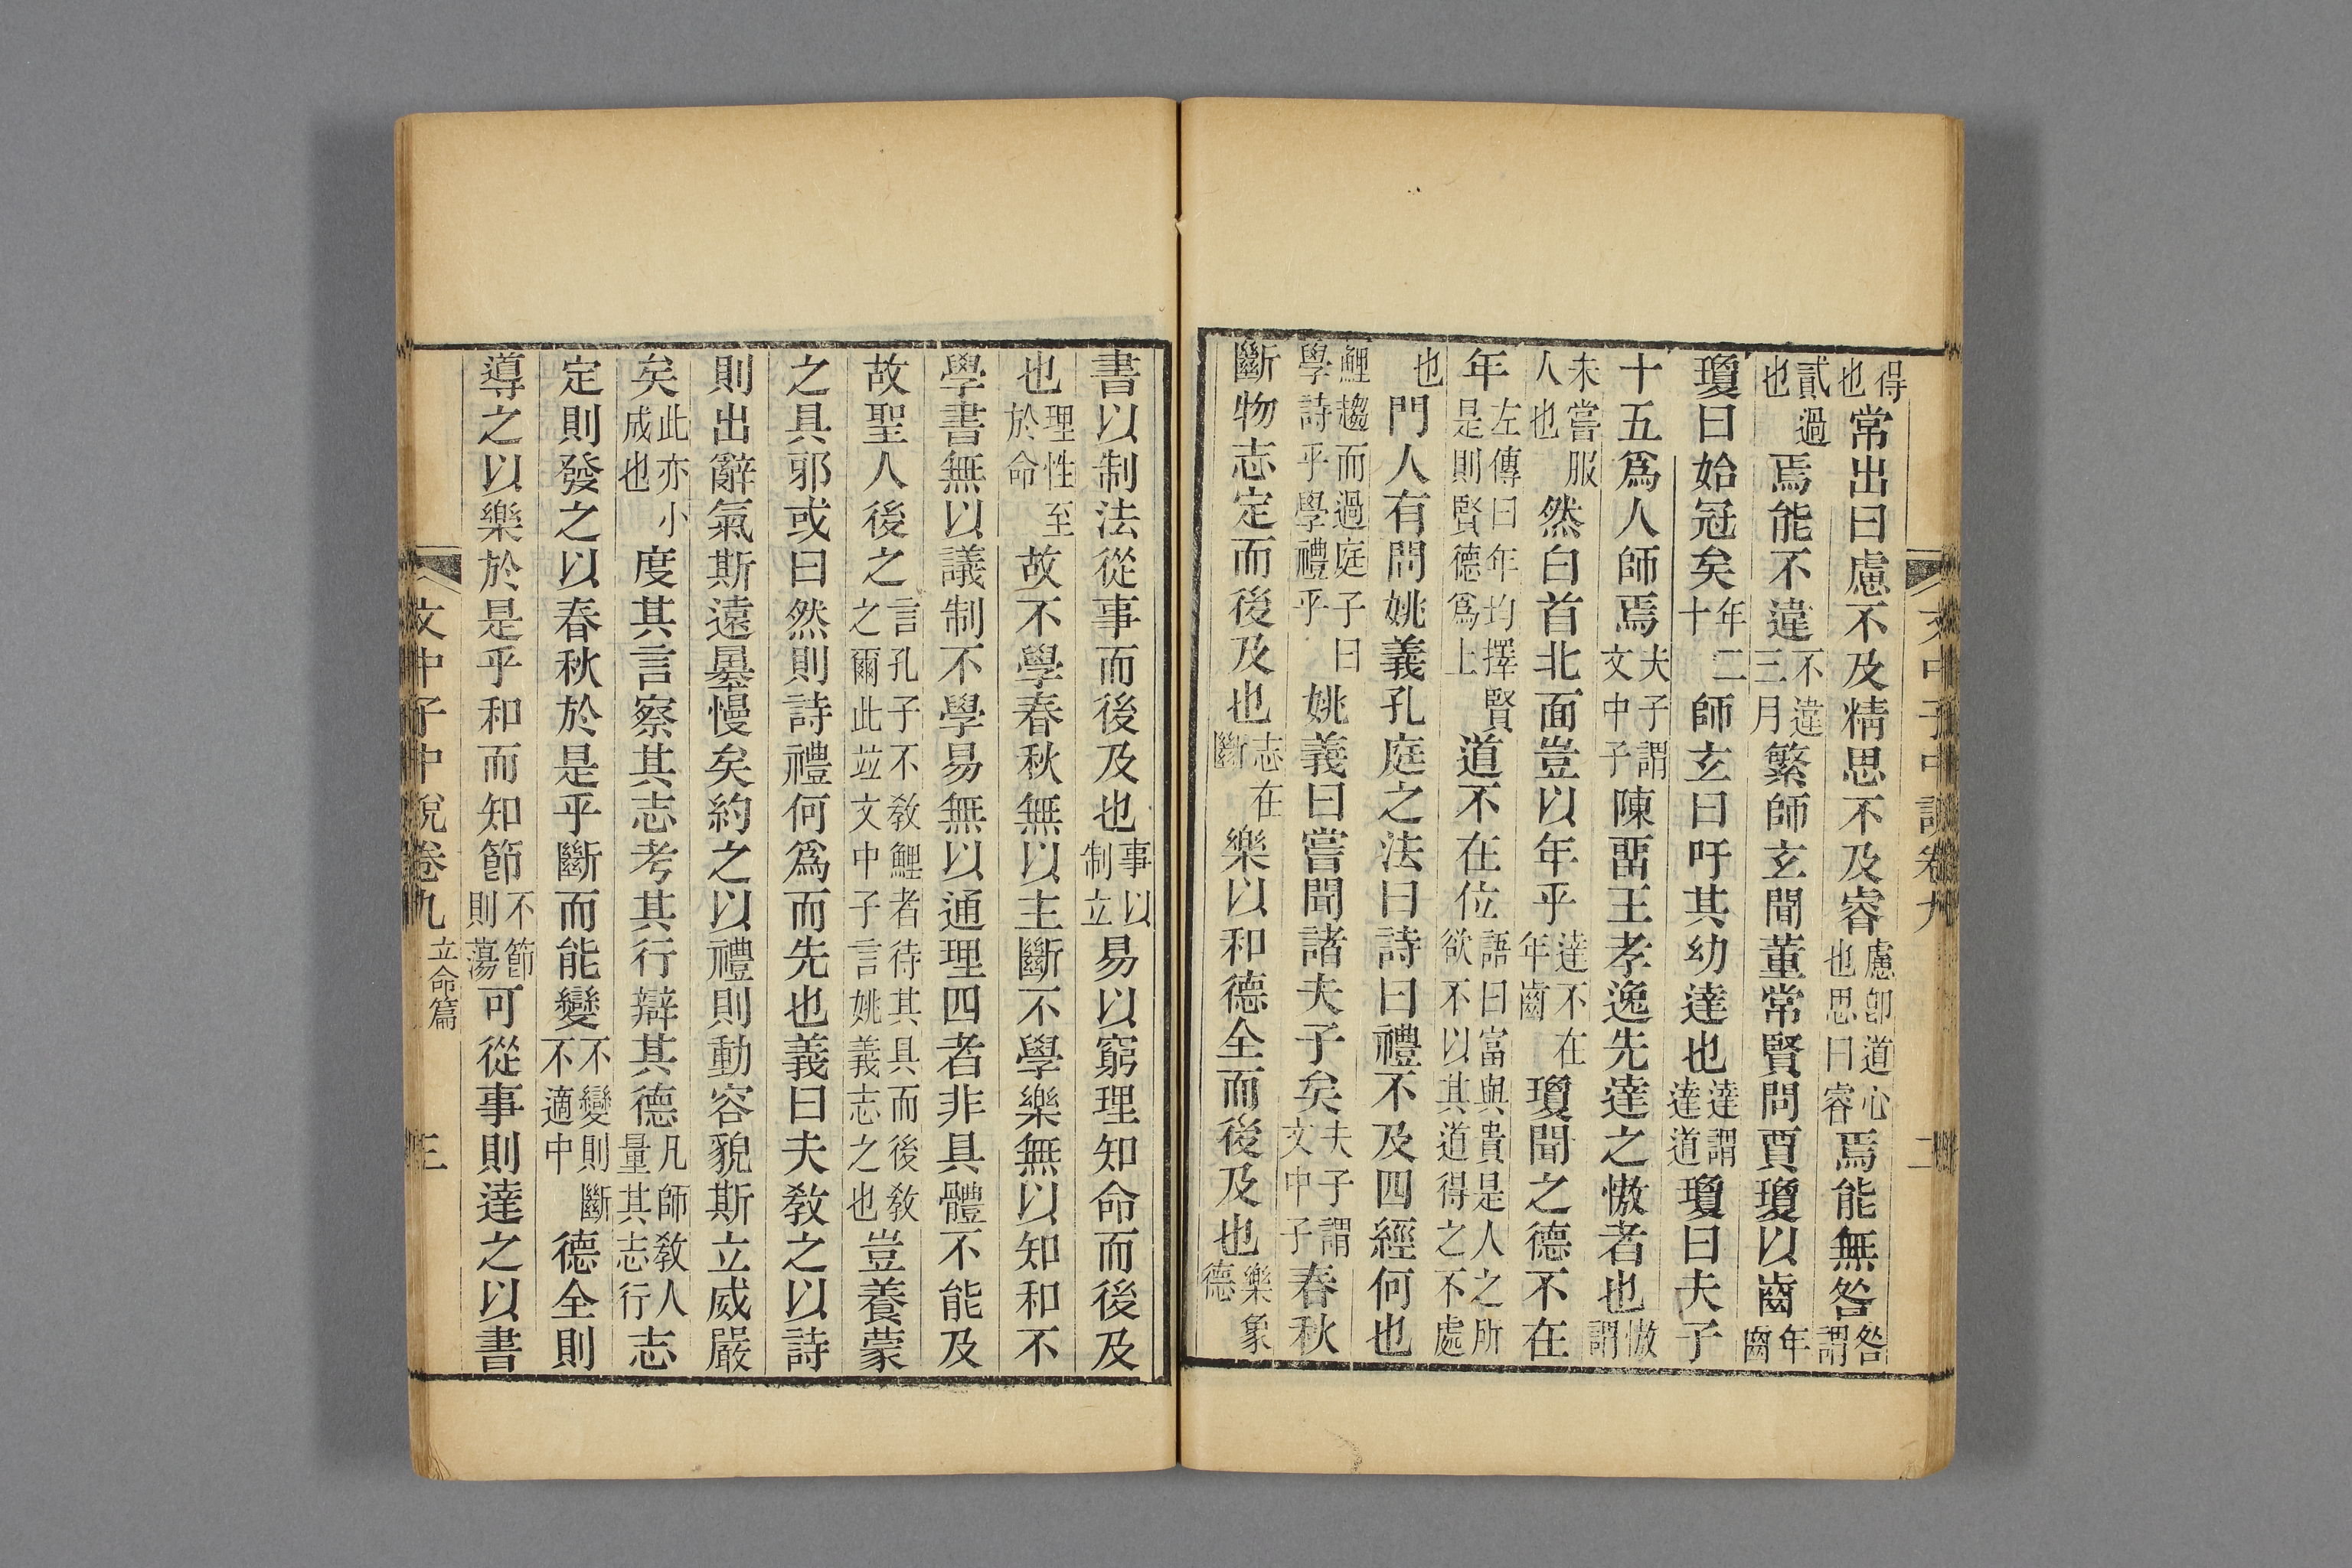 文中子中說卷九 二
得也常出曰慮不及精思不及睿慮卽道心也思曰睿焉能無咎咎謂
貳過也焉能不違不違三月繁師玄聞董常賢問賈瓊以齒年齒
瓊曰始冠矣年二十師玄曰吁其幼達也達謂達道瓊曰夫子
十五爲人師焉夫子謂文中子陳畱王孝逸先達之慠者也慠謂
未嘗服人也然白首北面豈以年乎達不在年齒瓊聞之德不在
年左傳曰年均擇賢是則賢德爲上道不在位語曰富與貴是人之所欲不以其道得之不處
也門人有問姚義孔庭之法曰詩曰禮不及四經何也
鯉趨而過庭子曰學詩乎學禮乎姚義曰嘗聞諸夫子矣夫子謂文中子春秋
斷物志定而後及也志在斷樂以和德全而後及也樂象德
書以制法從事而後及也事以制立易以窮理知命而後及
也理性至於命故不學春秋無以主斷不學樂無以知和不
學書無以議制不學易無以通理四者非具體不能及
故聖人後之言孔子不敎鯉者待其具而後敎之爾此竝文中子言姚義志之也豈養蒙
之具邪或曰然則詩禮何爲而先也義曰夫敎之以詩
則出辭氣斯遠暴慢矣約之以禮則動容貌斯立威嚴
矣此亦小成也度其言察其志考其行辯其德凡師敎人量其志行志
定則發之以春秋於是乎斷而能變不變則斷不適中德全則
導之以樂於是乎和而知節不節則蕩可從事則達之以書
文中子中說卷九 立命篇 三